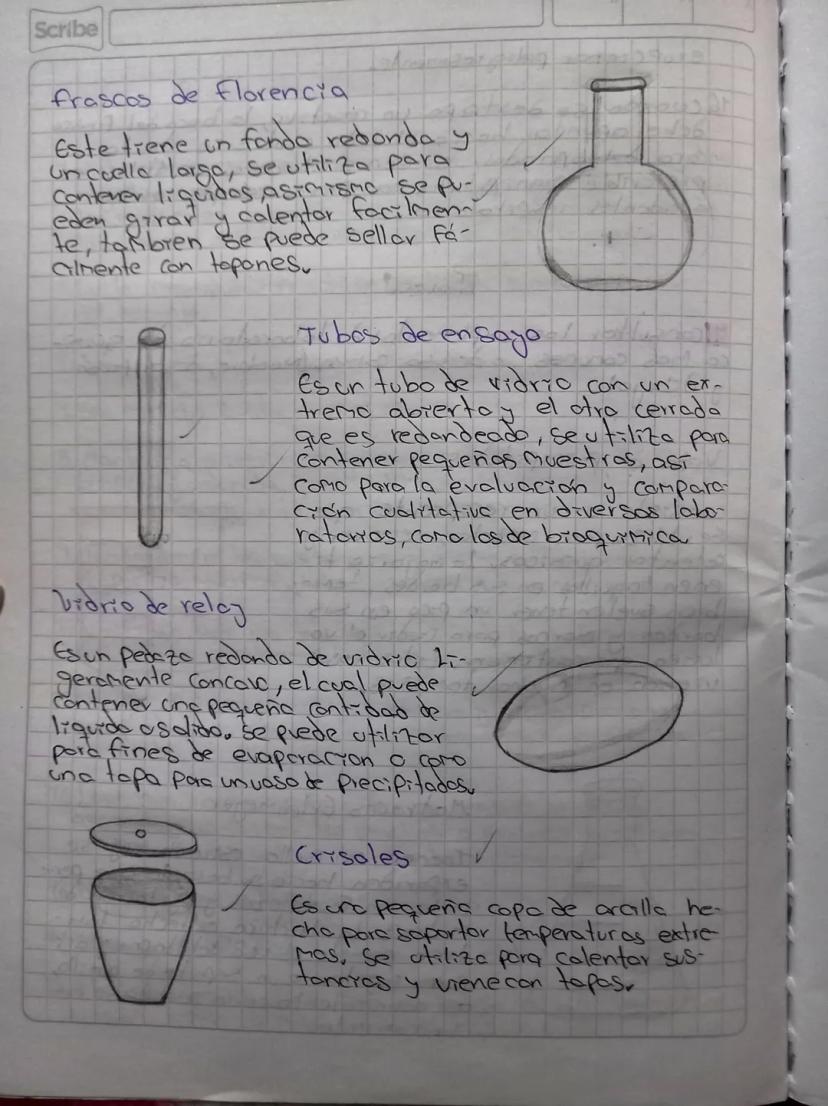 Scribe
Frascos de Florencia
Este tiene un fondo redondo y
un cuello largo, se utiliza para
contener líquidos, asimismo se pu-
eden girar y calentar facilmen-
te, tambien se puede sellar fá-
cilmente con tapones.
Tubos de ensayo
Es un tubo de vidrio con un ex-
tremo abierto y el otro cerrado
que es redondeado, se utiliza para
contener pequeñas muestras, así
como para la evaluación y compara-
ción cualitativa en diversos labo-
ratorios, como los de bioquimica
Vidrio de reloj
Es un pedazo redondo de vidrio li-
geramente concavo, el cual puede
contener una pequeña cantidad de
líquido o solido. Se puede utilizar
para fines de evaporacion o como
una tapa para un vaso de precipitados.
Crisoles
Es una pequeña copa de arcilla he-
cha para soportar temperaturas extre-
mas, se utiliza para calentar sus-
tancias y viene con tapas.